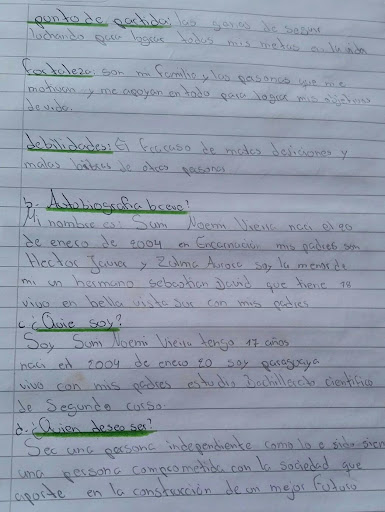 punto de partida: las ganas de seguir
luchando para lograr todas mis metas en la vida
fortaleza: son mi familia y las personas que me
motivan y me apoyan en todo para lograr mis objetivos
de vida.
debilidades: El fracaso de malas decisiones y
malas de otras personas
b- Autobiografia breve?
Mi nombre es: Sum Noemi Vieira naci el 20
de enero de 2004 en Encarnacion mis padres son
Hector Javier y Zulma Aurora soy la menor de
mi un hermano sebastian David que tiene 18
vivo en bella vista sur con mis padres
c. ¿Quie soy?
Soy Sum Noemi Vieira tengo 17 años
naci en 2004 de enero 20 soy paraguaya
vivo con mis padres estudio Bachillerato cientifico
de Segundo curso.
d. ¿Quien deseo ser?
Ser una persona independiente como lo e sido
una persona comprometida con la sociedad que
aporte en la construcción de un mejor futuro